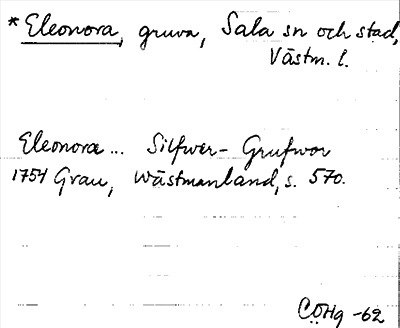 * Eleonora, gruva, Sala sn och stad,
Västm. l.
Eleonoræ... Silfwer- Grufwor
1754 Grau, Wästmanland, s. 570.
CÖHg -62